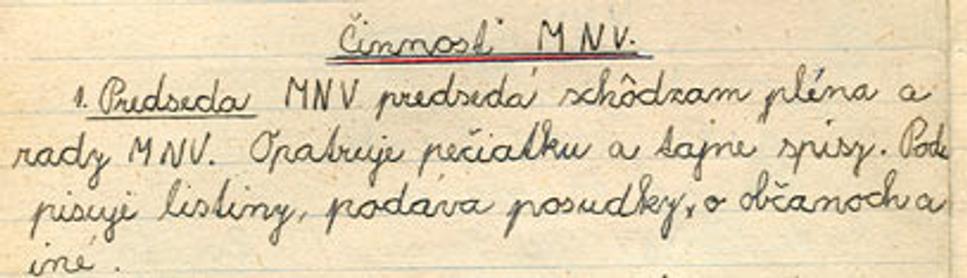 Činnosť MNV.
1. Predseda MNV predsedá schôdzam pléna a
rady MNV. Opatruje pečiatku a tajné spisy. Pod
pisuje listiny, podáva posudky, o občanoch a
iné.